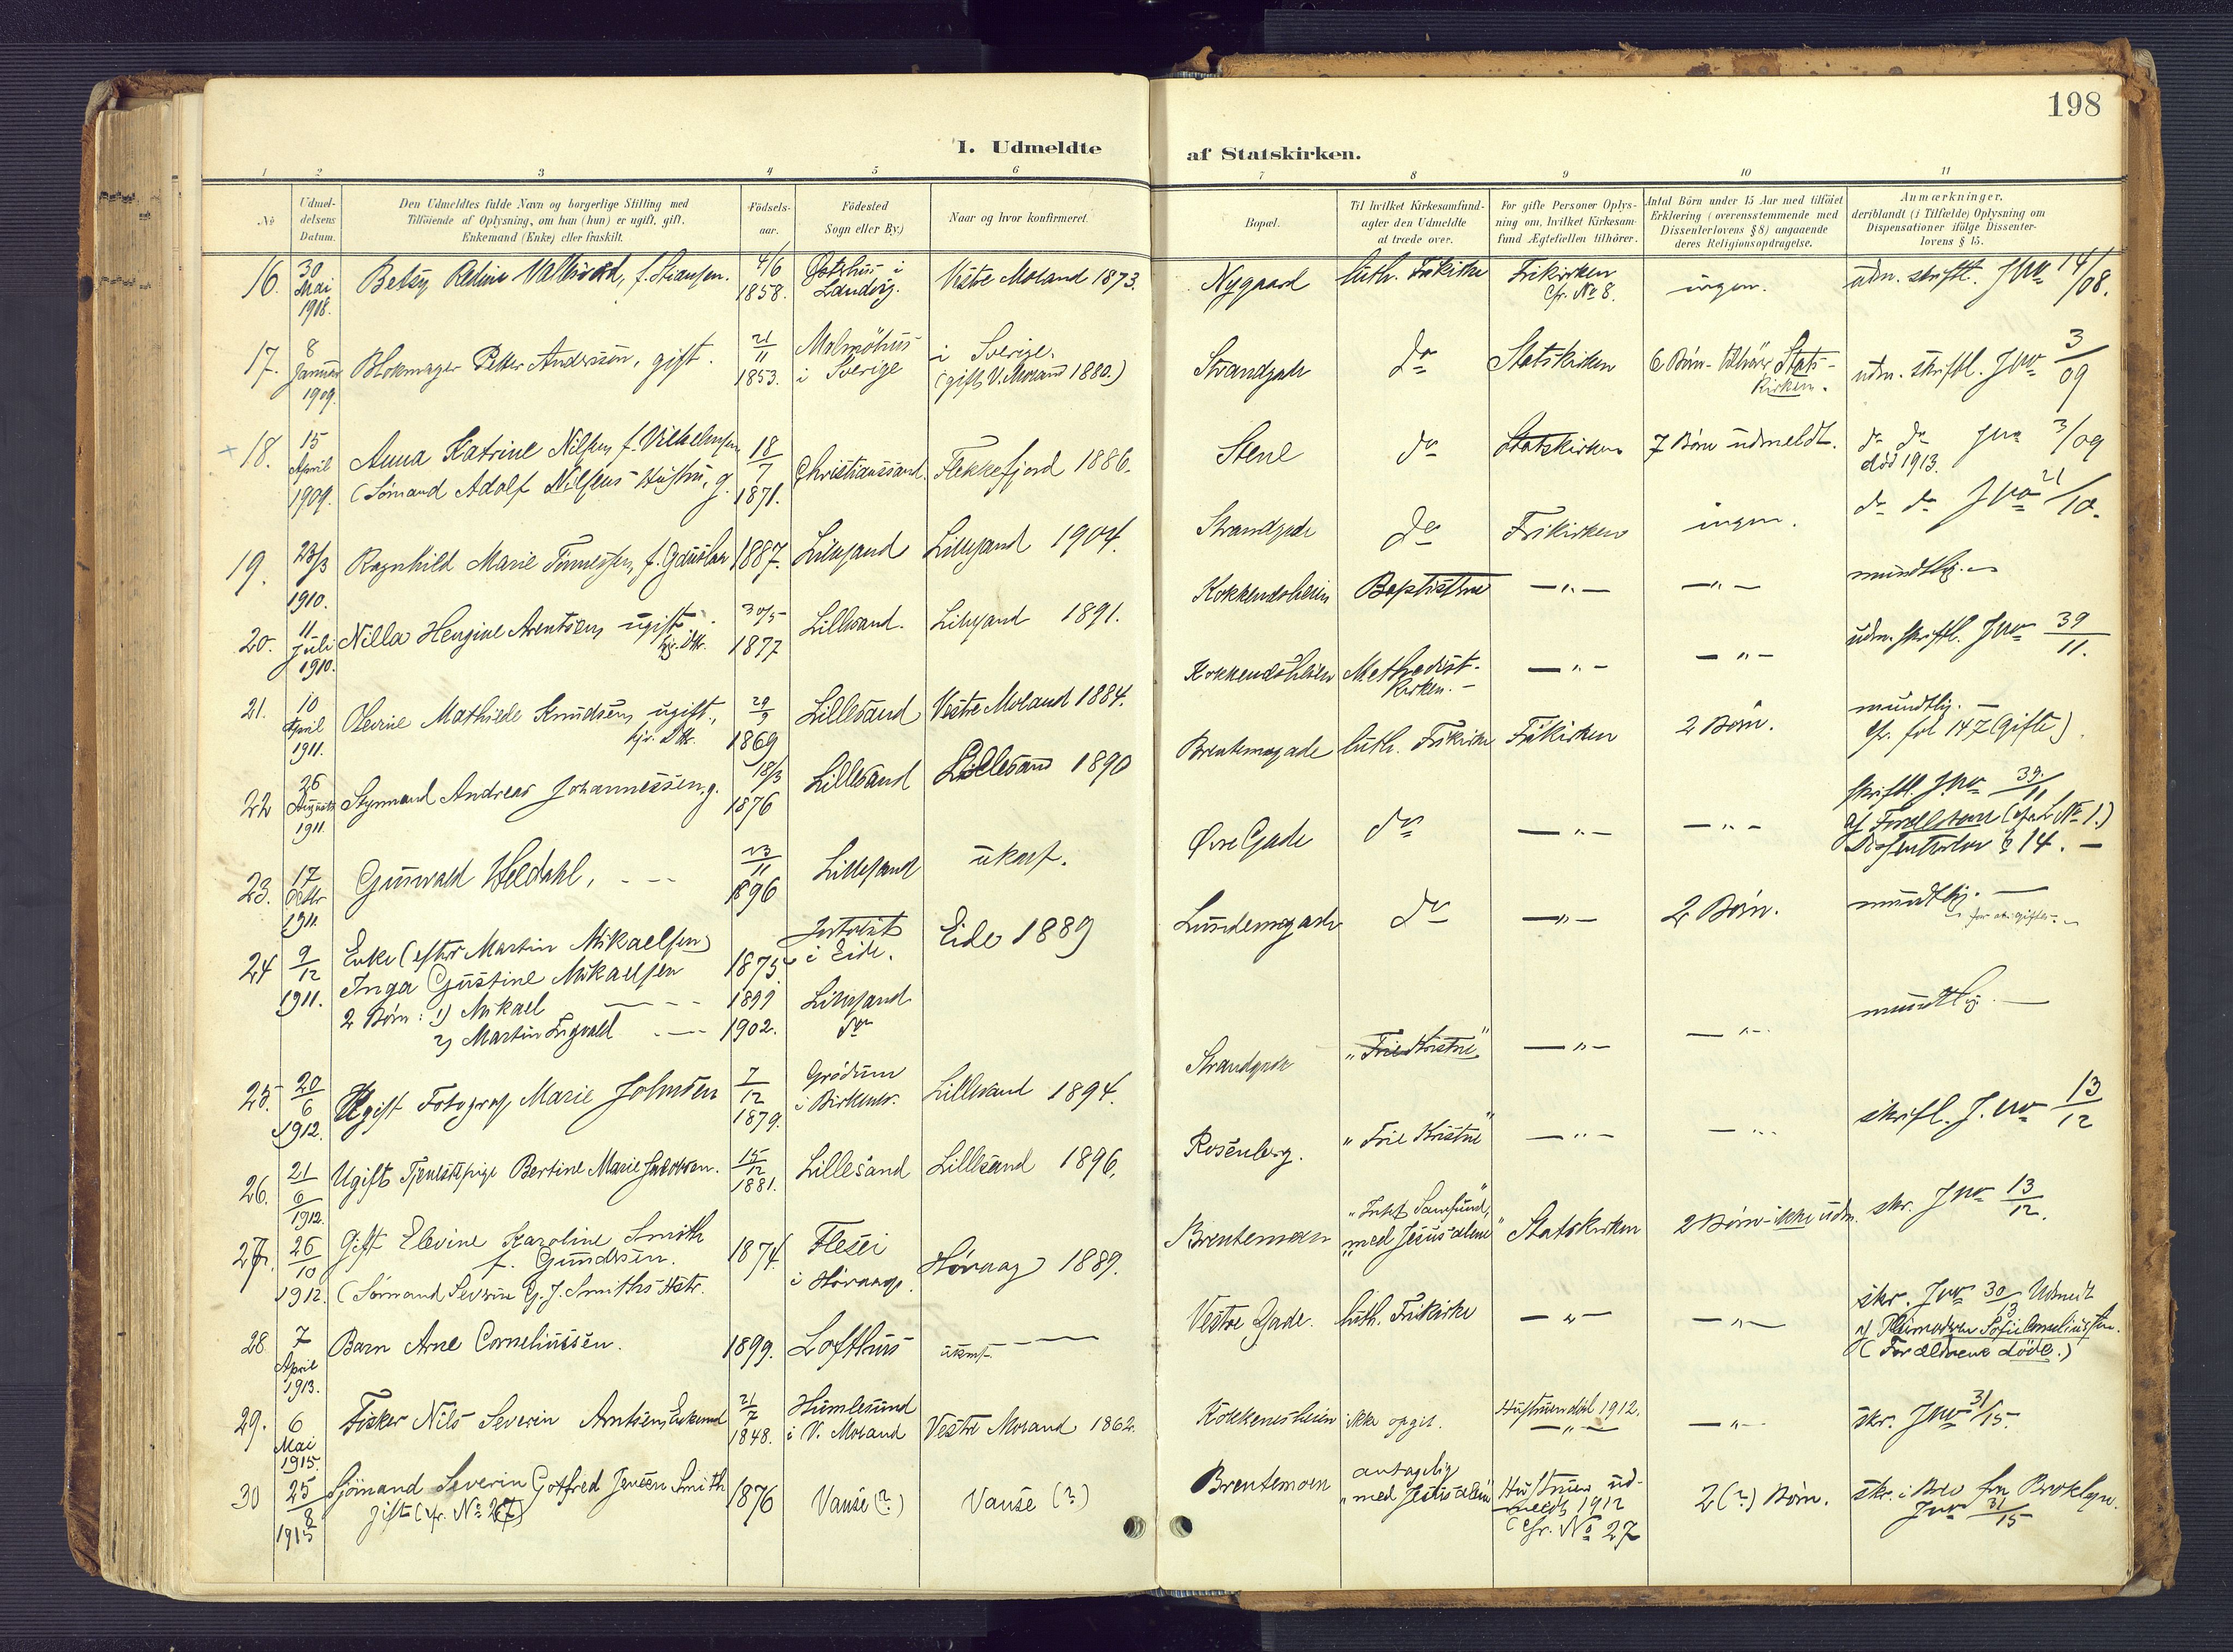 198
I. Udmeldte af Statskirken.
1 2 3 4 5 6 7 8 9 10 11
No
Udmel-
delsens
Datum.
Den Udmeldtes fulde Navn og borgerlige Stilling med
Tilføiende af Oplysning, om han (hun) er ugift, gift,
Enkemand (Enke) eller fraskilt.
Fødsels-
aar.
Fødested
Sogn eller By.)
Naar og hvor konfirmeret.
Bopæl.
Til hvilket Kirkesamfund-
agter den Udmeldte
at træde over.
For gifte Personer Oplys-
ning om, hvilket Kirkesam-
fund Ægtefællen tilhører.
Antal Børn under 15 Aar med tilføiet
Erklæring (overensstemmende med
Dissenterlovens § 8) angaaende
deres Religionsopdragelse.
Anmærkninger,
deriblandt (i Tilfælde) Oplysning om
Dispensationer ifølge Dissenter-
lovens § 15.
16. 30 Mai 1908. Betsy 4/6 1858. i Landvig. Vestre Moland 1873. Nygaard luth. Frikirke Frikirken cfr. No 8. ingen. udm. skriftl. Jno 14/08.
17. 8 Januar 1909. Blokmager Petter Anderson, gift. 21/11 1853. Malmöhus i Sverige i Sverige. (gift V. Moland 1880.) Strandgade do Statskirken 6 Børn - tilhører Stats-kirken. udm. skriftl. Jno 3/09
18. 15 April 1909. Anna Katrine Nilsen f. Vilhelmsen (Sømand Adolf Nilsens Hustru, g. 18/7 1871. Christianssand. Flekkefjord 1886. Stene do Statskirken 7 Børn udmeldt. do do Jno 3/09 død 1913.
19. 23/3 1910. Ragnhild Marie f. 1887. Lillesand Lillesand 1904. Strandgade do Frikirken ingen. do do Jno 21/10.
20. 11 Juli 1910. Nilla Arentsen ugift. 30/5 1877 Lillesand. Lillesand 1891. Kokkenesheien Baptisterne — " — — " — mundtlig.
21. 10 April 1911. Mathilde Knudsen, ugift., 29/9 1869 Lillesand Vestre Moland 1884. Kokkenesheien Methodist-kirken. — — " — — " — udm. skriftl. Jno 39/11.
22 26 August 1911. Styrmand Andreas Johannessen, g. 18/3 1876 Lillesand Lillesand 1890 Brentemogade luth. Frikirke Frikirken 2 Børn. mundtlig. — cfr. fol 147 (gifte).
23. 17 Octbr 1911. Gunvald Heldahl, 23/11 1896 Lillesand ukonf. Øvre Gade do — " — — " — skriftl. Jno 39/11 af Forældrene No 1.) § 14. —
24 9/12 1911. Enke (efter Martin Mikaelsen) Inga Gustine Mikaelsen 1875 i Eide. Eide 1889 do — " — 2 Børn. mundtlig. —
2 Børn: 1) Mikael 1899 Lillesand
2) Martin 1902. do
25. 20/6 1912. Ugift Fotograf Marie Johnsen 7/12 1879. i Birkenes. Lillesand 1894. Strandgade "Frie Kristne" — " — — " — mundtlig. —
26. 21/6 1912. Ugift Tjenestepige Bertine Marie Jakobsen. 15/12 1881. Lillesand Lillesand 1896. Rosenberg. "Frie Kristne" — " — — " — skriftl. J. no 13/12
27. 26/10 1912. Gift Elevine Karoline Smith f. Gundersen. (Sømand Severin G. J. Smiths Hstr. 1874. i Høvaag. Høvaag 1889. Brentemoen Samfund, "med Jesus alene" Statskirken 2 Børn - ikke udm. skr. Jno 13/12.
28 7 April 1913. Barn Arne Corneliussen. 1899. Lofthus ukonf. — Vestre Gade. luth. Frikirke — " — — " — skr. Jno 30/13 Udmeldt af Pleiemoderen Sofie Corneliussen. (Forældrene døde.)
29. 6 Mai 1915. Fisker Nils Severin Arntsen, Enkemand 21/7 1848. Humlesund i V. Moland Vestre Moland 1862. Kokkenesheien ikke opgit. Hustruen død 1912. — " — — " — skr. Jno 31/15.
30 25/8 1915 Sjømand Severin Gotfred Jensen Smith gift (cfr. No 27) 1876 Vanse (?) Vanse (?) Brentemoen antagelig "med Jesus alene" Hustruen ud-meldt 1912 (cfr. No 27 2 (?) Børn. skr. i Brev fra Broklyn. Jno 31/15